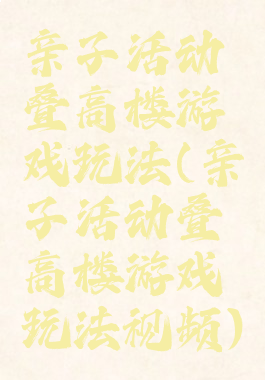 亲子活动
叠高楼游
戏玩法(亲
子活动叠
高楼游戏
玩法视频)